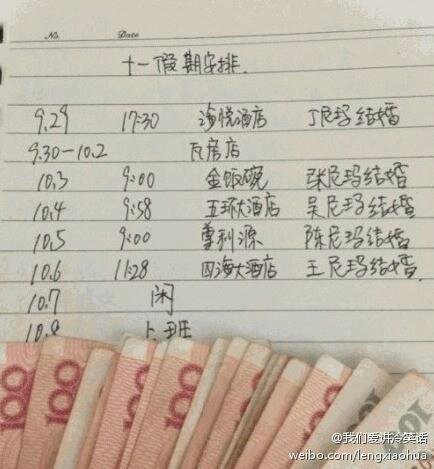 No. Date
十一假期安排.
9.29 17:30 海悦酒店 丁尼玛结婚
9.30-10.2 瓦房店
10.3 9:00 金饭碗 张尼玛结婚
10.4 9:58 五环大酒店 吴尼玛结婚
10.5 9:00 粤利源 陈尼玛结婚
10.6 11:28 四海大酒店 王尼玛结婚.
10.7 闲
10.8 上班
100 100 100 100
@我们爱讲冷笑话
weibo.com/lengxiaohua